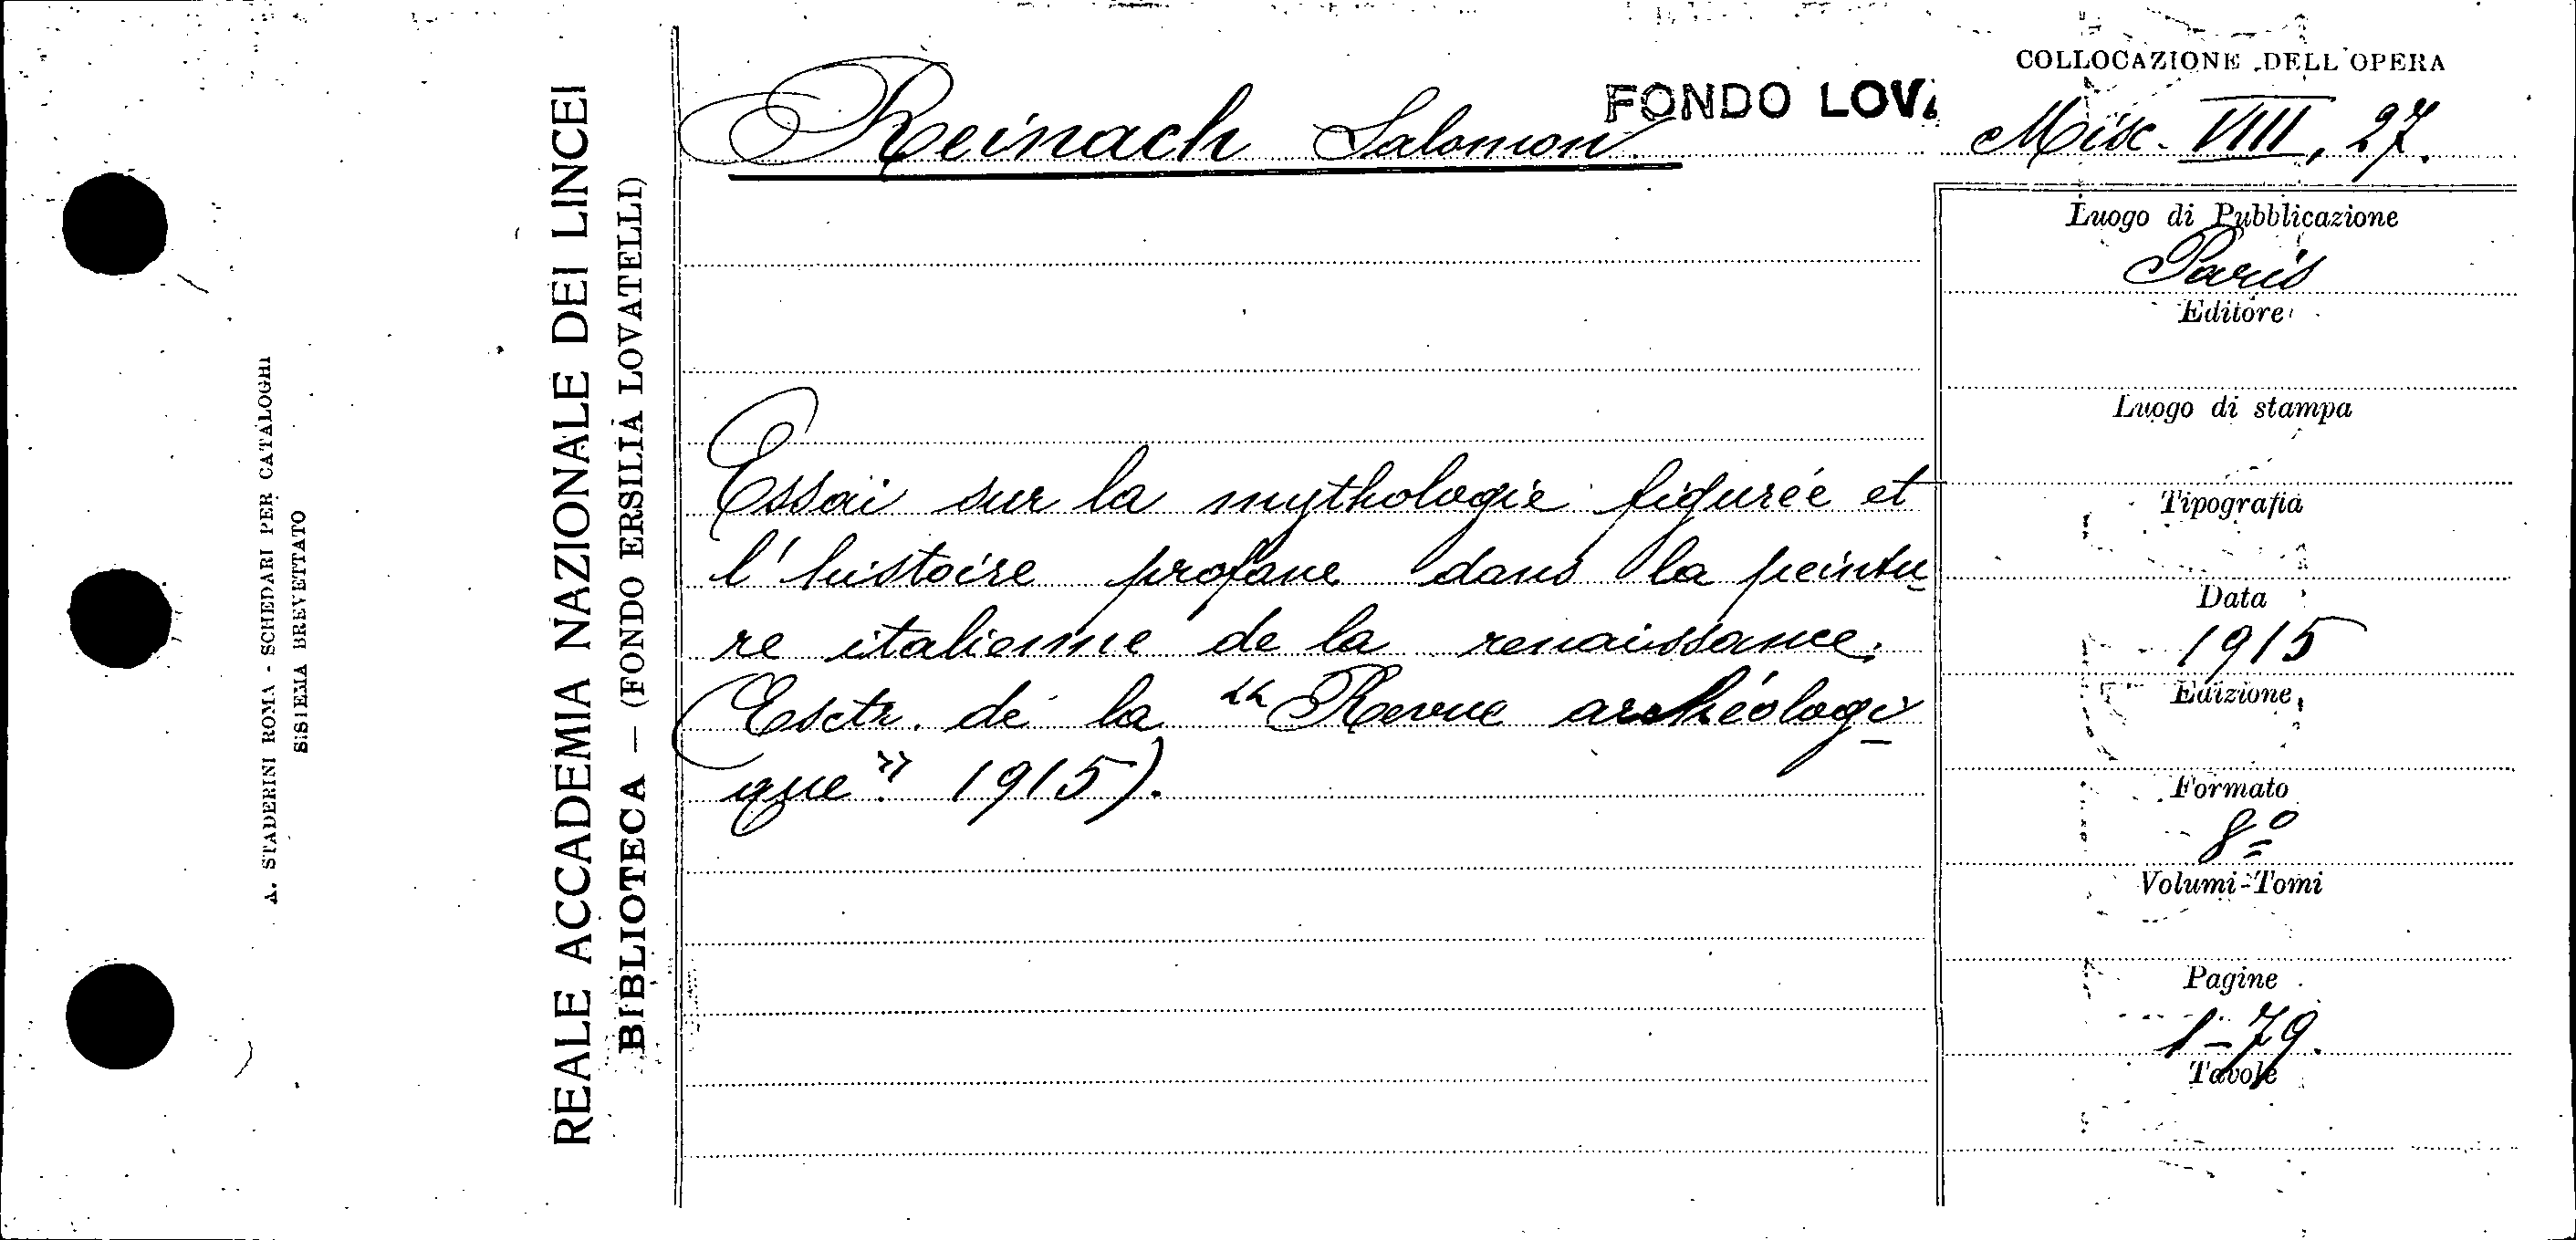 A. STADERINI ROMA - SCHEDARI PER CATALOGHI
SISTEMA BREVETTATO
REALE ACCADEMIA NAZIONALE DEI LINCEI
BIBLIOTECA — (FONDO ERSILIA LOVATELLI)
Reinach Salomon
FONDO LOVA
COLLOCAZIONE DELL'OPERA
Misc. VIII, 27.
Essai sur la mythologie figurée et
l'histoire profane dans la peintu-
re italienne de la renaissance.
(Estr. de la "Revue archéologi-
que" 1915).
Luogo di Pubblicazione
Paris
Editore
Luogo di stampa
Tipografia
Data
1915
Edizione
Formato
8º
Volumi-Tomi
Pagine
1-79.
Tavole